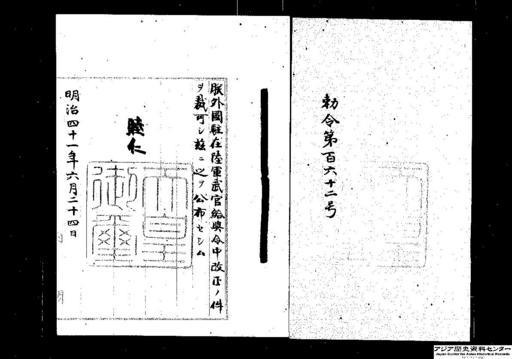 勅令第百六十二号
朕外國駐在陸軍武官給與令中改正ノ件
ヲ裁可シ玆ニ之ヲ公布セシム
睦仁
天皇御璽
明治四十一年六月二十四日
アジア歴史資料センター
Japan Center for Asian Historical Records